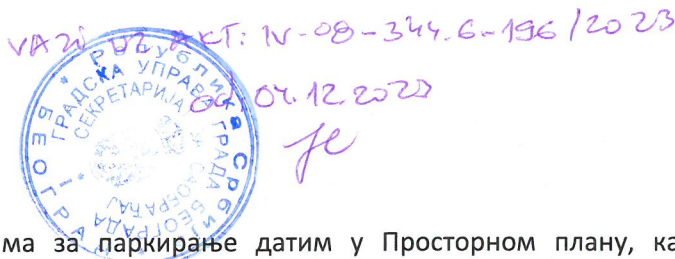 VAZI UZ AKT: IV-08-344.6-196/2023
od 04.12.2023
Република Србија
ГРАДСКА УПРАВА ГРАДА БЕОГРАДА
СЕКРЕТАРИЈАТ ЗА САОБРАЋАЈ
БЕОГРАД
ма за паркирање датим у Просторном плану, ка